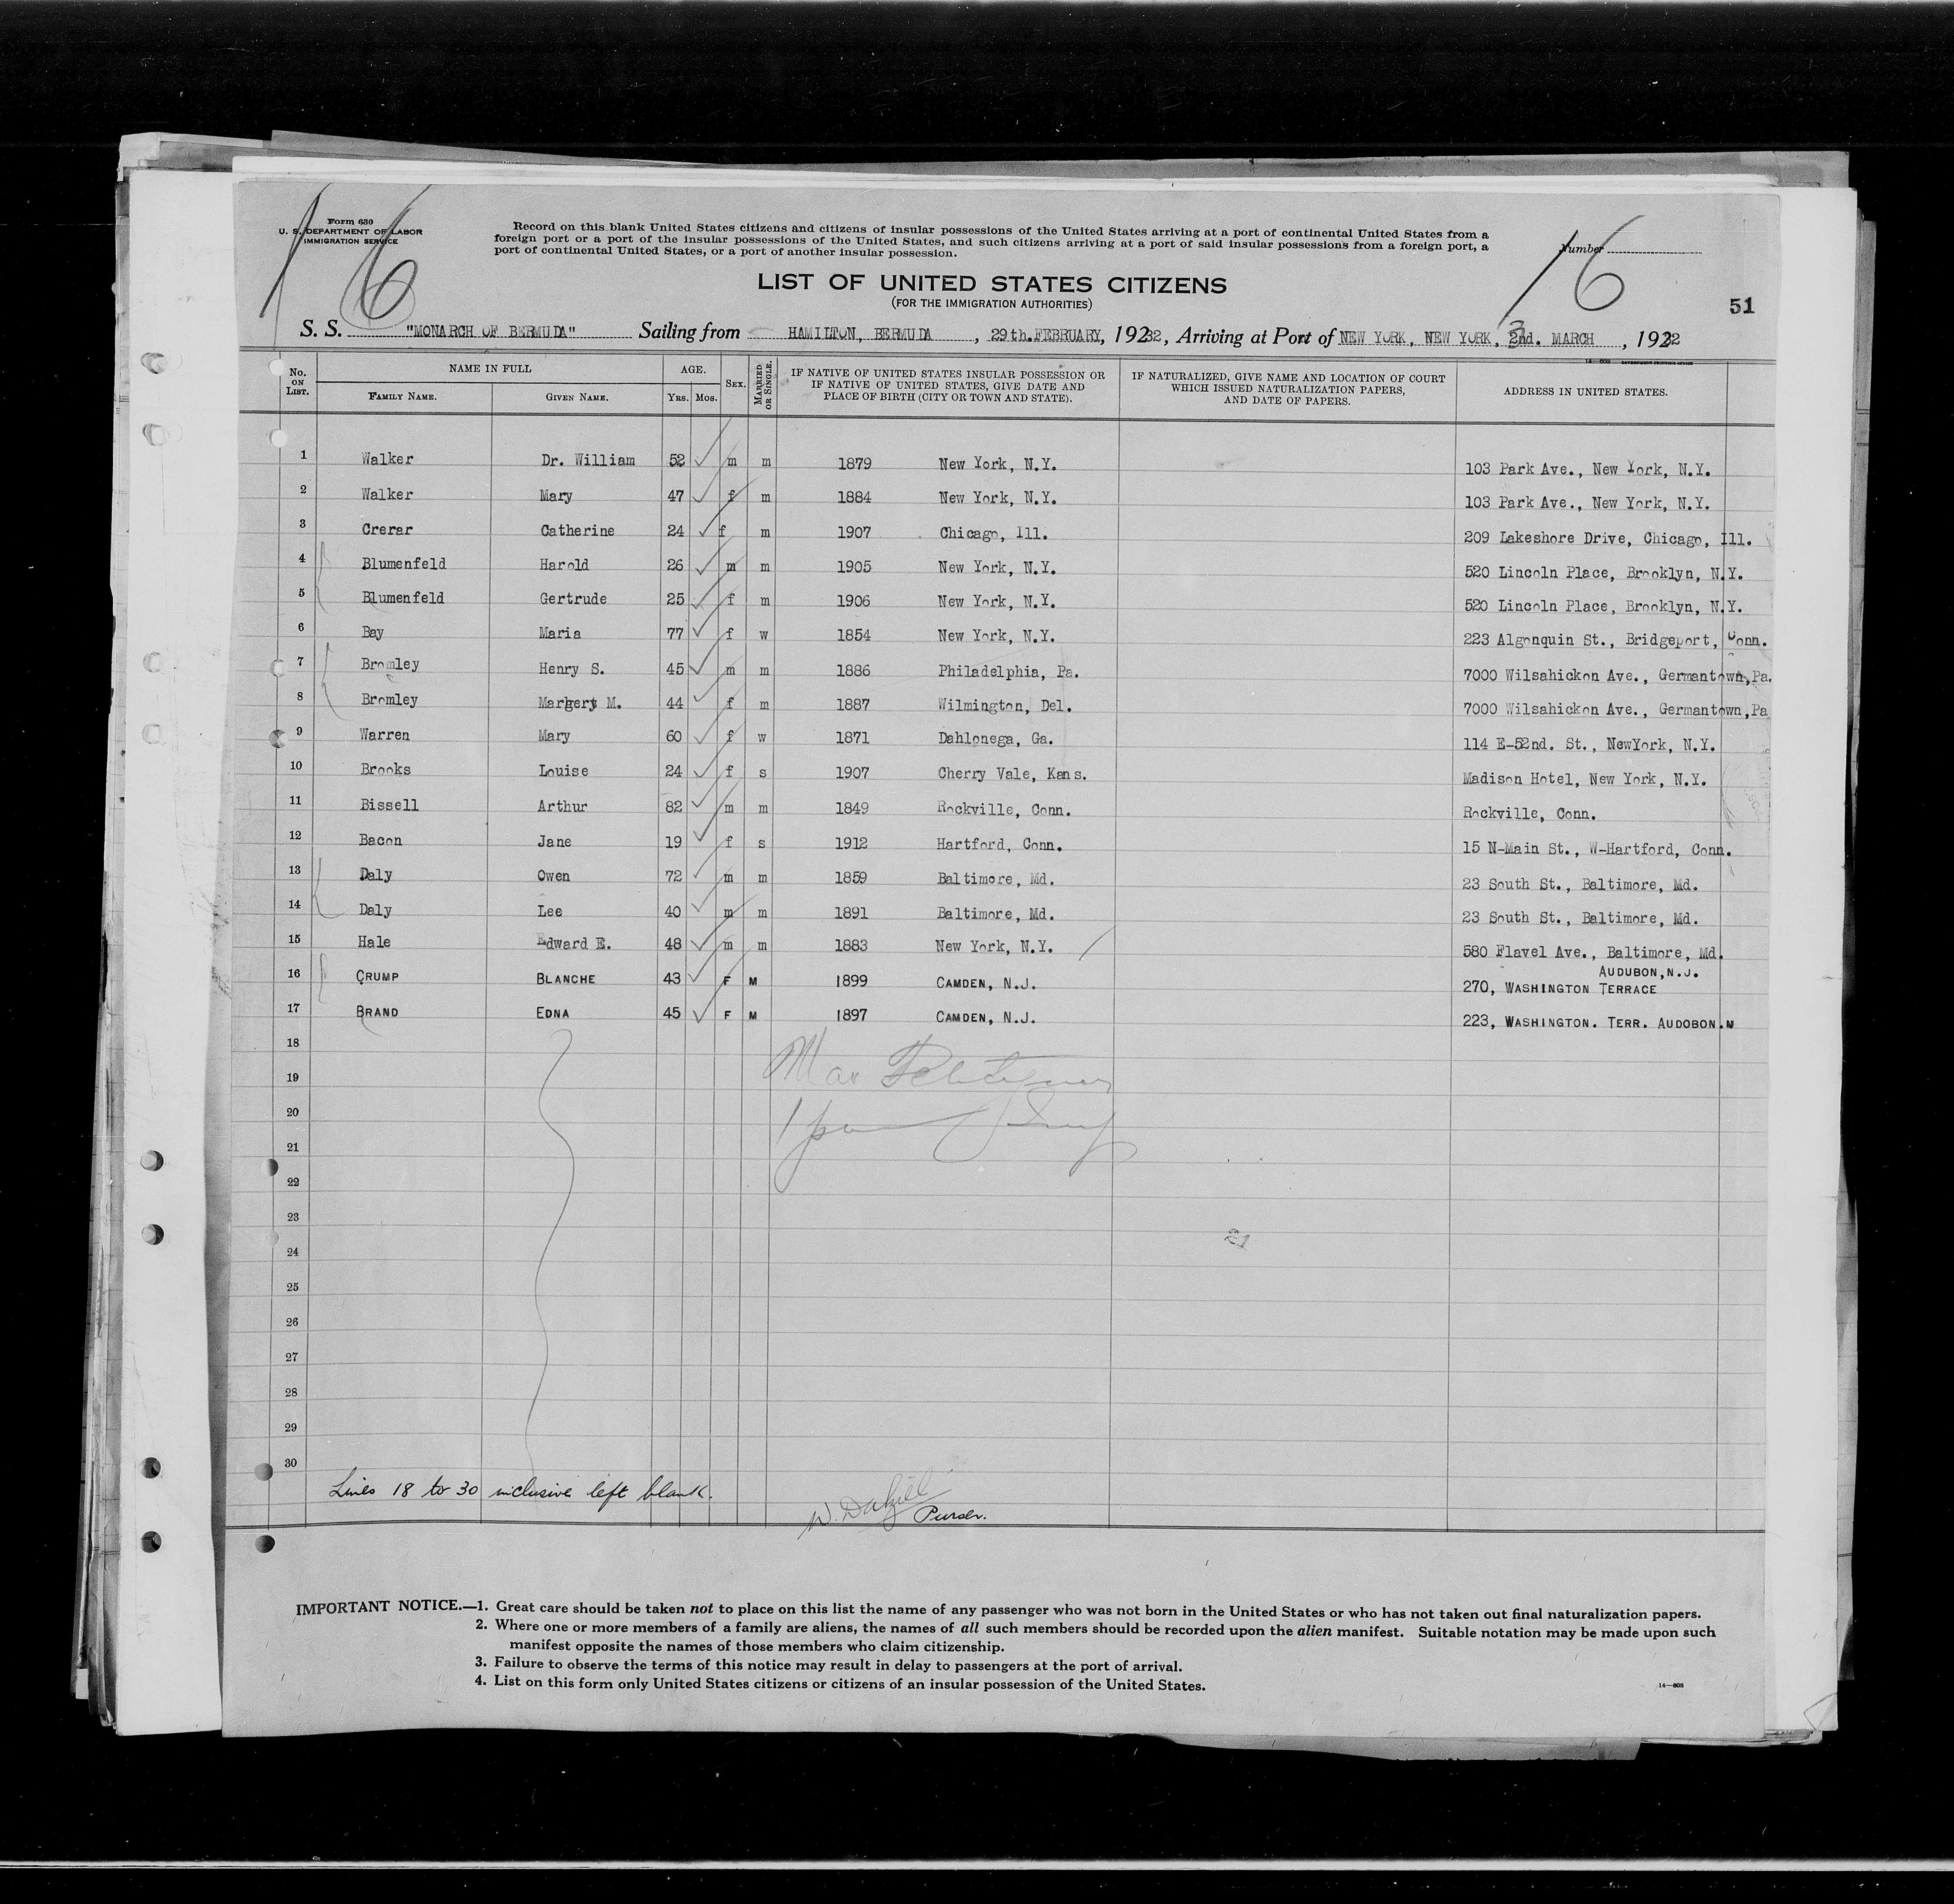 16
Form 630
U. S. DEPARTMENT OF LABOR
IMMIGRATION SERVICE
Record on this blank United States citizens and citizens of insular possessions of the United States arriving at a port of continental United States from a
foreign port or a port of the insular possessions of the United States, and such citizens arriving at a port of said insular possessions from a foreign port, a
port of continental United States, or a port of another insular possession.
Number
16
LIST OF UNITED STATES CITIZENS
(FOR THE IMMIGRATION AUTHORITIES)
51
S. S. "MONARCH OF BERMUDA" Sailing from HAMILTON, BERMUDA, 29th.FEBRUARY, 1932, Arriving at Port of NEW YORK, NEW YORK, 3 2nd. MARCH, 1932
14—608 GOVERNMENT PRINTING OFFICE
No. ON LIST. NAME IN FULL FAMILY NAME. GIVEN NAME. AGE. YRS. MOS. SEX. MARRIED OR SINGLE. IF NATIVE OF UNITED STATES INSULAR POSSESSION OR IF NATIVE OF UNITED STATES, GIVE DATE AND PLACE OF BIRTH (CITY OR TOWN AND STATE). IF NATURALIZED, GIVE NAME AND LOCATION OF COURT WHICH ISSUED NATURALIZATION PAPERS, AND DATE OF PAPERS. ADDRESS IN UNITED STATES.
1 Walker Dr. William 52 m m 1879 New York, N.Y. 103 Park Ave., New York, N.Y.
2 Walker Mary 47 f m 1884 New York, N.Y. 103 Park Ave., New York, N.Y.
3 Crerar Catherine 24 f m 1907 Chicago, Ill. 209 Lakeshore Drive, Chicago, Ill.
4 Blumenfeld Harold 26 m m 1905 New York, N.Y. 520 Lincoln Place, Brooklyn, N.Y.
5 Blumenfeld Gertrude 25 f m 1906 New York, N.Y. 520 Lincoln Place, Brooklyn, N.Y.
6 Bay Maria 77 f w 1854 New York, N.Y. 223 Algonquin St., Bridgeport, Conn.
7 Bromley Henry S. 45 m m 1886 Philadelphia, Pa. 7000 Wilsahickon Ave., Germantown,Pa.
8 Bromley Margery M. 44 f m 1887 Wilmington, Del. 7000 Wilsahickon Ave., Germantown,Pa
9 Warren Mary 60 f w 1871 Dahlonega, Ga. 114 E-52nd. St., NewYork, N.Y.
10 Brooks Louise 24 f s 1907 Cherry Vale, Kans. Madison Hotel, New York, N.Y.
11 Bissell Arthur 82 m m 1849 Rockville, Conn. Rockville, Conn.
12 Bacon Jane 19 f s 1912 Hartford, Conn. 15 N-Main St., W-Hartford, Conn.
13 Daly Owen 72 m m 1859 Baltimore, Md. 23 South St., Baltimore, Md.
14 Daly Lee 40 m m 1891 Baltimore, Md. 23 South St., Baltimore, Md.
15 Hale Edward E. 48 m m 1883 New York, N.Y. 580 Flavel Ave., Baltimore, Md.
AUDUBON, N.J.
16 CRUMP BLANCHE 43 F M 1899 CAMDEN, N.J. 270, WASHINGTON TERRACE
17 BRAND EDNA 45 F M 1897 CAMDEN, N.J. 223, WASHINGTON. TERR. AUDOBON.N
18
19
20
21
22
23
24
25
26
27
28
29
30
Lines 18 to 30 inclusive left blank.
W. Dalziell
Purser.
IMPORTANT NOTICE.—1. Great care should be taken not to place on this list the name of any passenger who was not born in the United States or who has not taken out final naturalization papers.
2. Where one or more members of a family are aliens, the names of all such members should be recorded upon the alien manifest. Suitable notation may be made upon such
manifest opposite the names of those members who claim citizenship.
3. Failure to observe the terms of this notice may result in delay to passengers at the port of arrival.
4. List on this form only United States citizens or citizens of an insular possession of the United States.
14—608